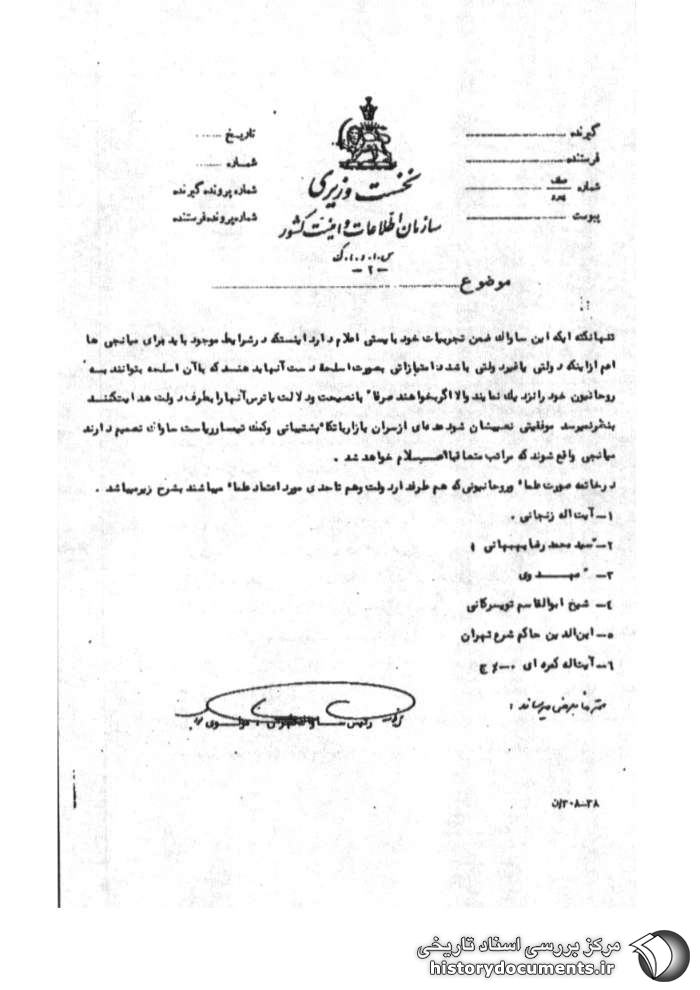 گیرنده
فرستنده
شماره
پیوست
تاریخ
شماره
شماره پرونده گیرنده
شماره پرونده فرستنده
نخست وزیری
سازمان اطلاعات و امنیت کشور
س.ا.و.ا.ک
-۲-
موضوع
تنها نکته ایکه این ساواك ضمن تجربیات خود بایستی اعلام دارد اینستکه در شرایط موجود باید برای میانجی ها
اعم از اینکه دولتی یا غیر دولتی باشد امتیازاتی بصورت اسلحه دست آنها بدهند که با آن اسلحه بتوانند به
روحانیون خود را نزدیك نمایند والا اگر بخواهند صرفا" با نصیحت و دلالت یا ترس آنها را بطرف دولت هدایت کنند
بنظر نمیرسد موفقیتی نصیبشان شود عده‌ای از سران بازار با تکا" پشتیبانی و کمك تیمسار ریاست ساواك تصمیم دارند
میانجی واقع شوند که مراتب متعاقبا اعلام خواهد شد .
در خاتمه صورت علما" و روحانیونی که هم طرفدار دولت و هم تا حدی مورد اعتماد علما" میباشند بشرح زیر میباشد .
۱- آیت اله زنجانی .
۲- سید محمد رضا بهبهانی
۳- " مهدوی
۴- شیخ ابوالقاسم تویسرکانی
۵- امین الدین حاکم شرع تهران
۶- آیت اله کمره ای
رئیس ساواك تهران . مولوی
۳۰۸-۳۸/ت
مرکز بررسی اسناد تاریخی
historydocuments.ir